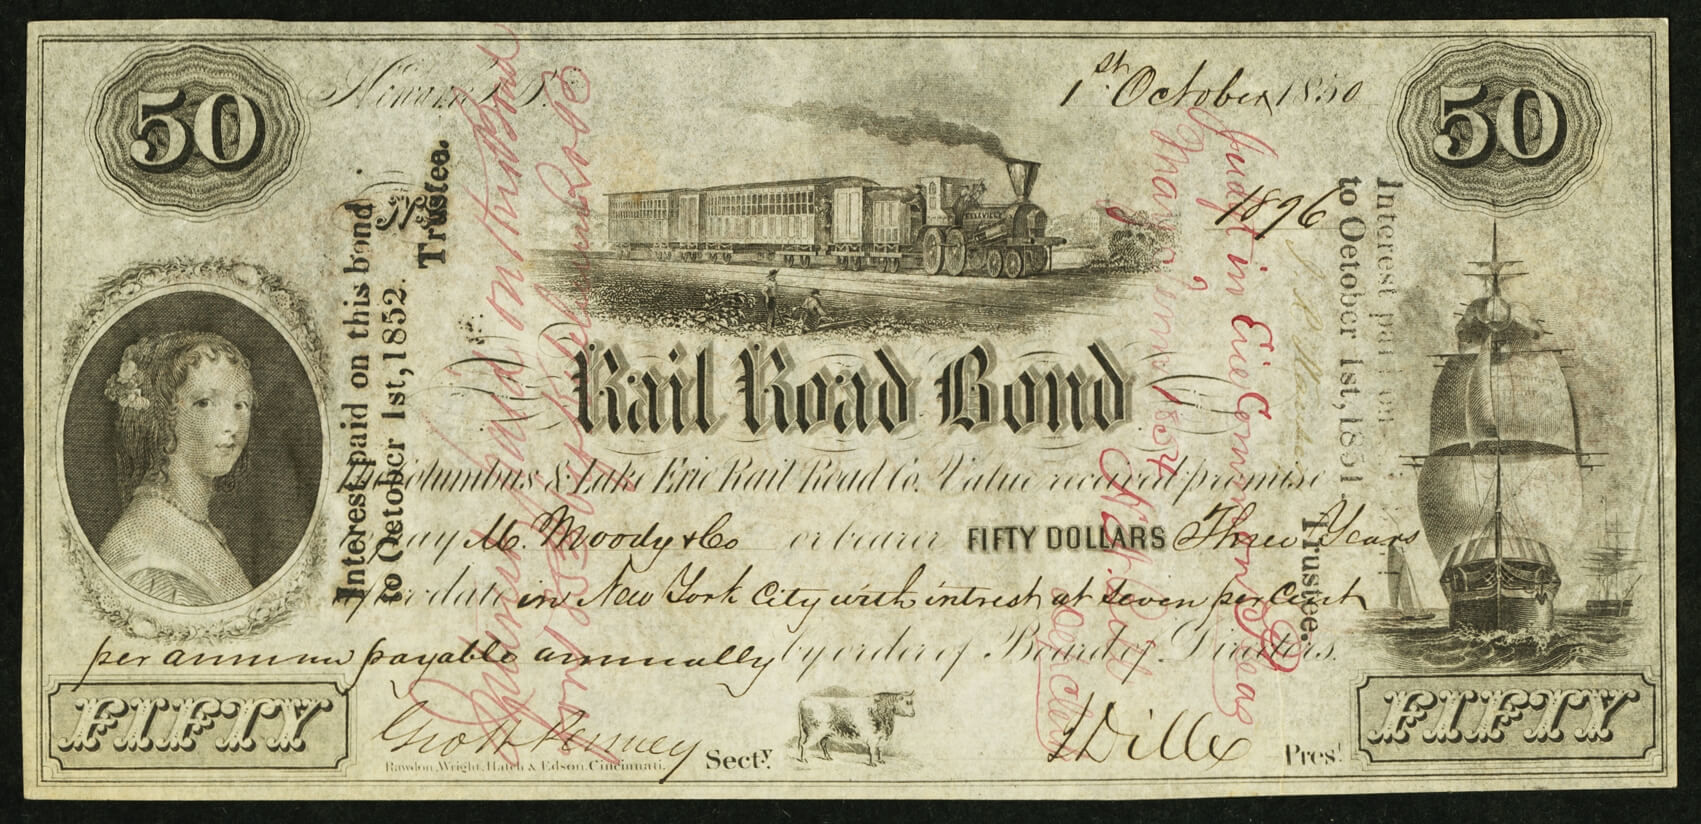 50
50
Newark
1st October 1850
No
1896
BELLVILLE
Rail Road Bond
The Columbus & Lake Erie Rail Road Co. Value received promise
to pay M. Moody & Co or bearer FIFTY DOLLARS Three Years
after date in New York City with intrest at seven per Cent
per annum payable annually by order of Board of Directors.
FIFTY
Geo W Penney Secty.
J Dille Prest.
FIFTY
Rawdon, Wright, Hatch & Edson, Cincinnati.
Interest paid on this bond
to Oetober 1st, 1852.
Trustee.
Interest paid on
to Oetober 1st, 1851
Trustee.
paid on this Bond
Judgt in Erie Common Pleas
May 1854